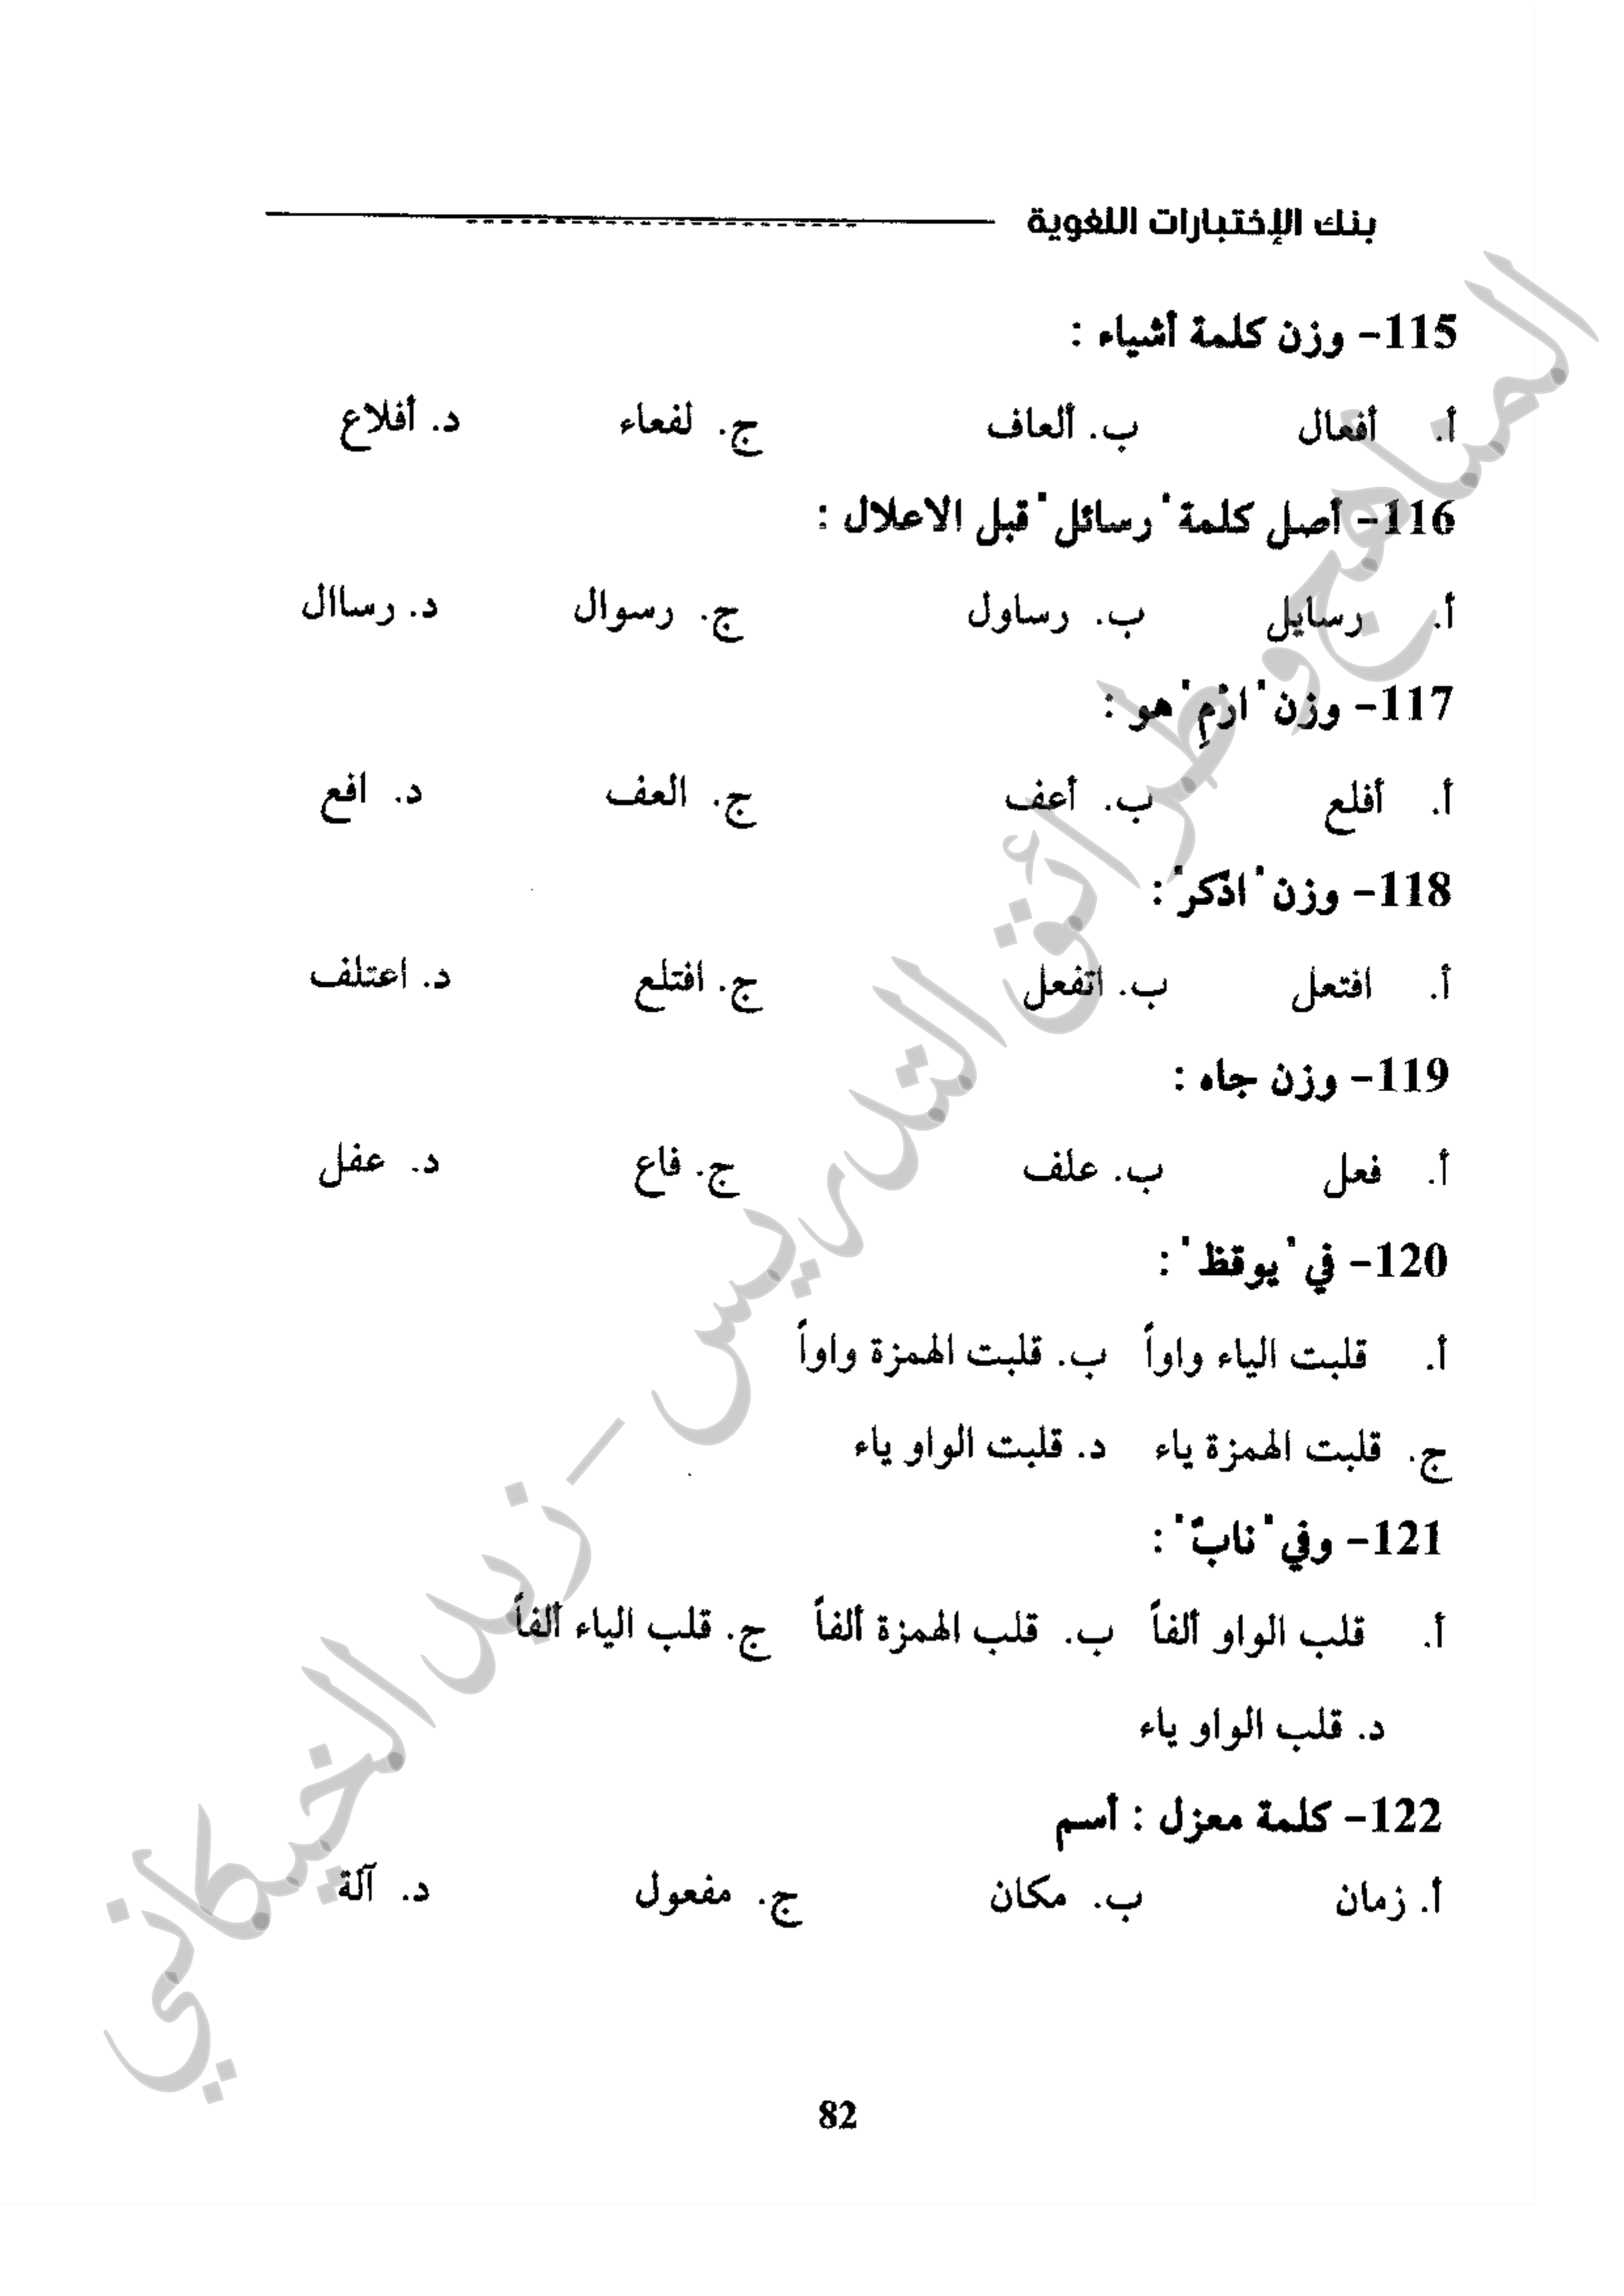 بنك الإختبارات اللغوية
115- وزن كلمة أشياء :
أ. أفعال ب. ألعاف ج. لفعاء د. أفلاع
116- أصل كلمة "رسائل" قبل الاعلال :
أ. رسايل ب. رساول ج. رسوال د. رساال
117- وزن "ارْمِ" هو :
أ. أفلع ب. أعف ج. العف د. افع
118- وزن "اذّكر" :
أ. افتعل ب. اتفعل ج. افتلع د. اعتلف
119- وزن جاه :
أ. فعل ب. علف ج. فاع د. عفل
120- في "يوقظ" :
أ. قلبت الياء واواً ب. قلبت الهمزة واواً
ج. قلبت الهمزة ياء د. قلبت الواو ياء
121- وفي "نابٌ" :
أ. قلب الواو ألفاً ب. قلب الهمزة ألفاً ج. قلب الياء ألفاً
د. قلب الواو ياء
122- كلمة معزل : أسم
أ. زمان ب. مكان ج. مفعول د. آلة
82
المناهج وطرائق التدريس - زيد الخيكاني